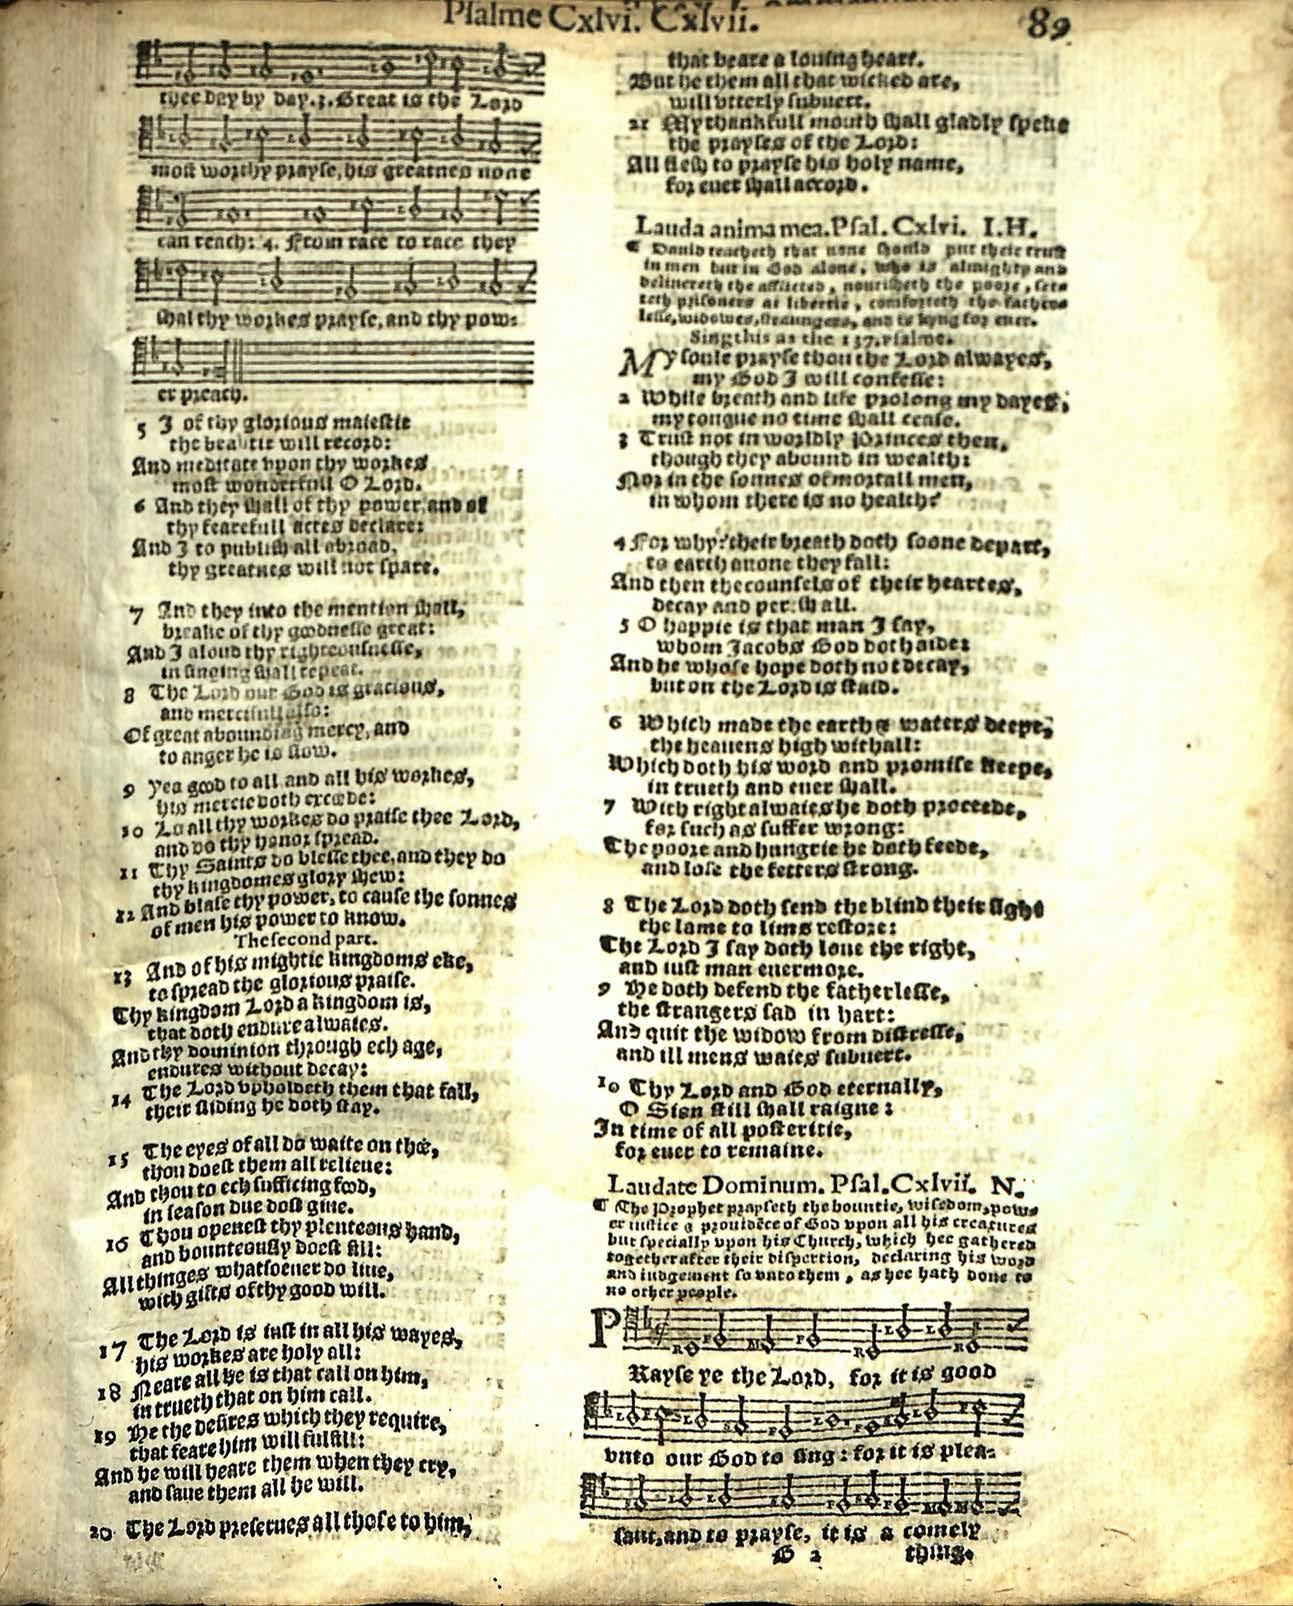 Psalme Cxlvi. Cxlvii.
89
thee day by day. 3. Great is the Lord
most worthy prayse, his greatnes none
can reach: 4. From race to race they
shal thy workes prayse, and thy pow-
er preach.
5 I of thy glorious maiestie
the beautie will record:
And meditate vpon thy workes
most wonderfull O Lord.
6 And they shall of thy power, and of
thy fearefull actes declare:
And I to publish all abroad,
thy greatnes will not spare.
7 And they into the mention shall,
breake of thy goodnesse great:
And I aloud thy righteousnesse,
in singing shall repeat.
8 The Lord our God is gracious,
and mercifull also:
Of great abounding mercy, and
to anger he is slow.
9 Yea good to all and all his workes,
his mercie doth exceede:
10 Lo all thy workes do praise thee Lord,
and do thy honor spread.
11 Thy Saints do blesse thee, and they do
thy kingdomes glory shew:
12 And blase thy power, to cause the sonnes
of men his power to know.
The second part.
13 And of his mightie kingdoms eke,
to spread the glorious praise.
Thy kingdom Lord a kingdom is,
that doth endure alwaies.
And thy dominion through ech age,
endures without decay:
14 The Lord vpholdeth them that fall,
their sliding he doth stay.
15 The eyes of all do waite on thee,
thou doest them all relieue:
And thou to ech sufficing food,
in season due dost giue.
16 Thou openest thy plenteous hand,
and bounteously doest fill:
All thinges whatsoeuer do liue,
with gifts of thy good will.
17 The Lord is iust in all his wayes,
his workes are holy all:
18 Neare all he is that call on him,
in trueth that on him call.
19 He the desires which they require,
that feare him will fulfill:
And he will heare them when they cry,
and saue them all he will.
20 The Lord preserues all those to him,
that beare a louing heart.
But he them all that wicked are,
will vtterly subuert.
21 My thankfull mouth shall gladly speke
the prayses of the Lord:
All flesh to prayse his holy name,
for euer shall accord.
Lauda anima mea. Psal. Cxlvi. I.H.
¶ Dauid teacheth that none should put their trust
in men but in God alone, who is almighty and
deliuereth the afflicted, nourisheth the poore, set-
teth prisoners at libertie, comforteth the father-
lesse, widowes, straungers, and is kyng for euer.
Sing this as the 137. Psalme.
MY soule prayse thou the Lord alwayes,
my God I will confesse:
2 While breath and life prolong my dayes,
my tongue no time shall cease.
3 Trust not in worldly Princes then,
though they abound in wealth:
Nor in the sonnes of mortall men,
in whom there is no health.
4 For why? their breath doth soone depart,
to earth anone they fall:
And then the counsels of their heartes,
decay and perish all.
5 O happie is that man I say,
whom Jacobs God doth aide:
And he whose hope doth not decay,
but on the Lord is staid.
6 Which made the earth & waters deepe,
the heauens high withall:
Which doth his word and promise keepe,
in trueth and euer shall.
7 With right alwaies he doth proceede,
for such as suffer wrong:
The poore and hungrie he doth feede,
and lose the fetters strong.
8 The Lord doth send the blind their sight
the lame to lims restore:
The Lord I say doth loue the right,
and iust man euermore.
9 He doth defend the fatherlesse,
the strangers sad in hart:
And quit the widow from distresse,
and ill mens waies subuert.
10 Thy Lord and God eternally,
O Sion still shall raigne:
In time of all posteritie,
for euer to remaine.
Laudate Dominum. Psal. Cxlvii. N.
¶ The Prophet prayseth the bountie, wisedom, pow-
er iustice & prouidẽce of God vpon all his creatures
but specially vpon his Church, which hee gathered
together after their dispertion, declaring his word
and iudgement so vnto them, as hee hath done to
no other people.
PRayse ye the Lord, for it is good
vnto our God to sing: for it is plea-
sant, and to prayse, it is a comely
G 2 thing.